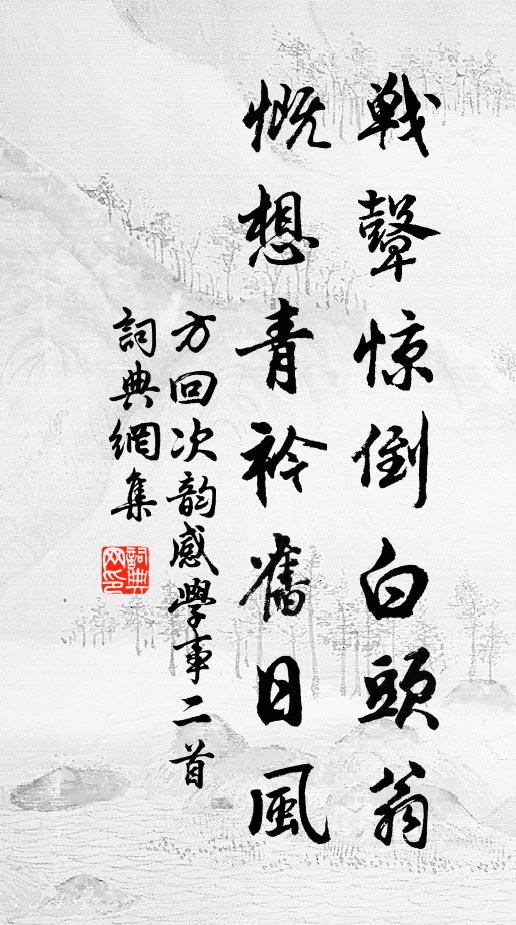 戦聲惊倒白頭翁
慨想青衿舊日風
方回次韵感學事二首
詞典網集
詞典网印